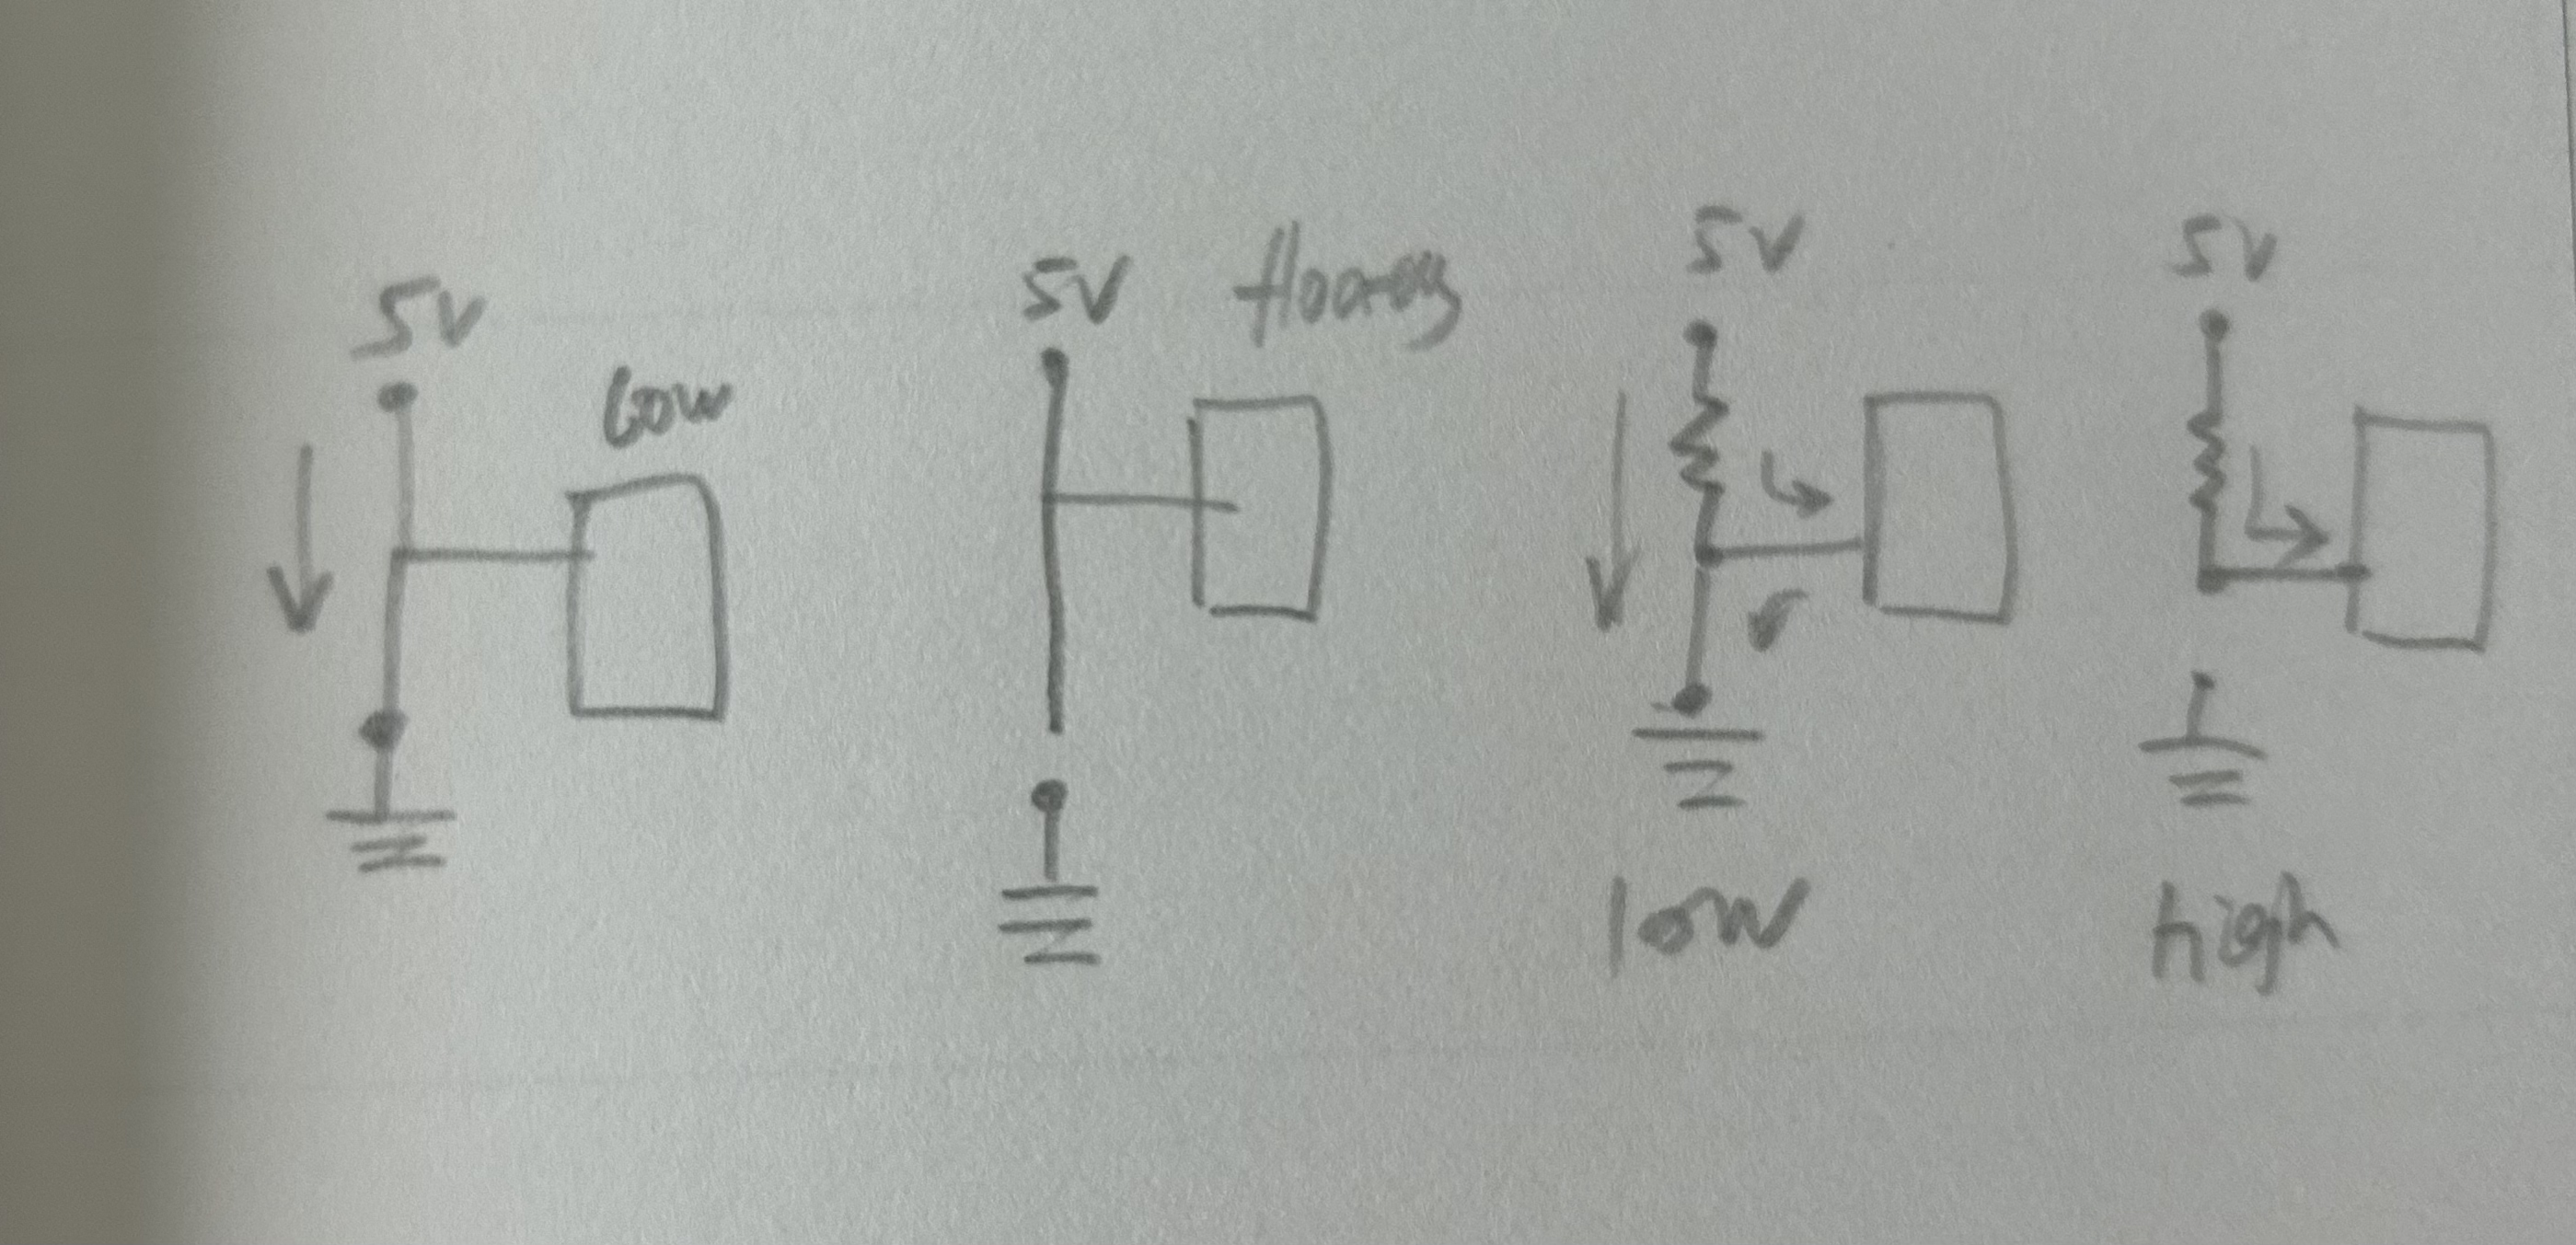 5V
Low
5V floating
5V
low
5V
high